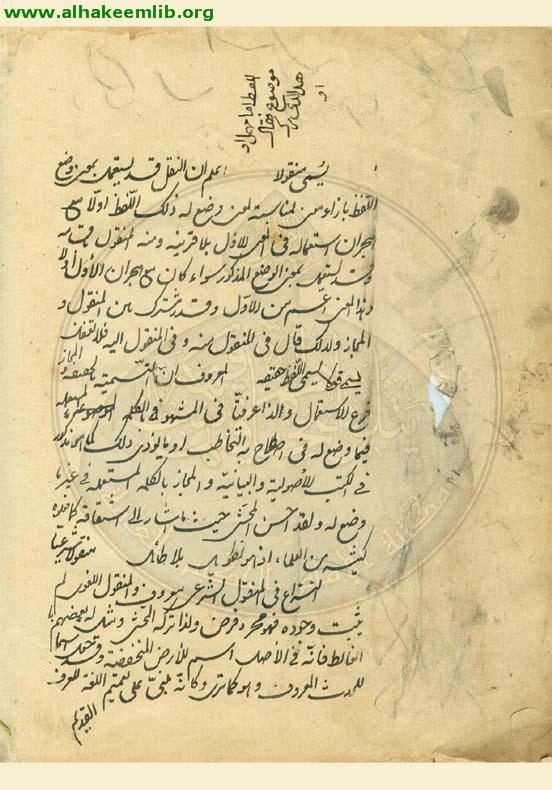 www.alhakeemlib.org
او
هذا الذي
موضوع
اللفظ اما مهمل او
يسمى منقولا اعلم ان النقل قد يستعمل بمعنى وضع
اللفظ بازاء معنى لمناسبة لمعنى وضع له ذلك اللفظ اولا مع
هجران استعماله في المعنى الاول بلا قرينة ومنه المنقول
وقد يستعمل بمعنى الوضع المذكور سواء كان مع هجران الأول أولا
وهذا المعنى اعم من الأول وقد يشترك بين المنقول و
المجاز ولذلك قال في المنقول منه و في المنقول اليه
يسمى اللفظ حقيقة المعروف ان التسمية بالحقيقة و المجاز
فرع الاستعمال ولذا عرفا في المشهور بالكلمة المستعملة
فيما وضع له في اصطلاح به التخاطب او ما يؤدي ذلك كما هو مذكور
في الكتب الأصولية والبيانية و المجاز بالكلمة المستعملة في غير ما
وضع له ولقد احسن المحشي حيث اشار الى
كثير من العلماء اذ هو تطويل بلا طائل منقولا شرعيا
النزاع في المنقول الشرعي معروف والمنقول اللغوي لم
يثبت وجوده فهو مجرد فرض ولذا تركه المحشي ومثل له بعضهم
الغائط فانه في الأصل اسم للأرض المنخفضة وقد جعل اسما
للحدث المعروف وهو كما ترى وكانه مبني على تعميم اللغة للعرف
القديم